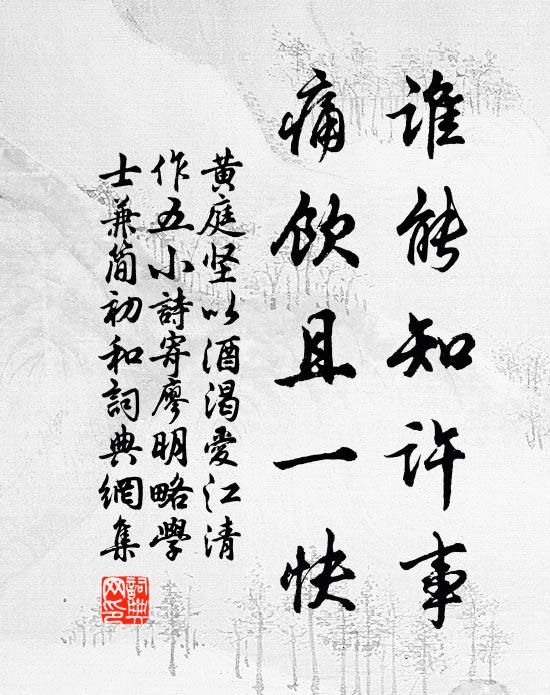 誰能知許事
痛飲且一快
黄庭坚以酒渴愛江清
作五小詩寄廖明略學
士兼简初和詞典網集